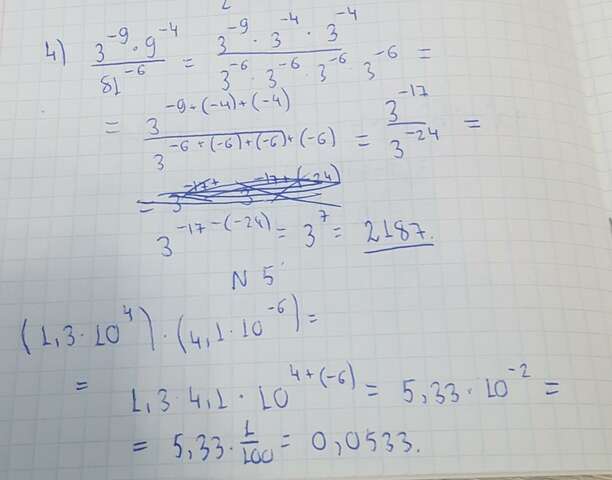 4) 3^-9 · 9^-4 / 81^-6 = 3^-9 · 3^-4 · 3^-4 / 3^-6 · 3^-6 · 3^-6 · 3^-6 =
= 3^-9+(-4)+(-4) / 3^-6+(-6)+(-6)+(-6) = 3^-17 / 3^-24 =
3^-17-(-24) = 3^7 = 2187.
N 5
(1,3 · 10^4) · (4,1 · 10^-6) =
= 1,3 · 4,1 · 10^4+(-6) = 5,33 · 10^-2 =
= 5,33 · 1/100 = 0,0533.